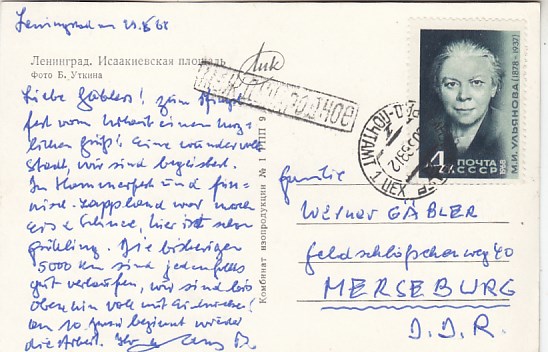 Leningrad am 29.5.68
Ленинград. Исаакиевская площадь
Фото Б. Уткина
МЕЖДУНАРОДНОЕ
Liebe Gäblers! zum
fest vom Urlaub einen herz-
lichen Gruß! Eine wundervolle
Stadt, wir sind begeistert.
In Hammerfest und fin-
nisch Lappland war noch
Eis u Schnee, hier ist schon
Frühling. Die bisherigen
5000 km sind jedenfalls
gut verlaufen, wir sind bis
obenhin voll mit Eindrücken!
Am 10. Juni beginnt wieder
die Arbeit.
Комбинат изопродукции № 1 РПП
4 ПОЧТА
СССР
1968
М.И. УЛЬЯНОВА (1878-1937)
ПОЧТАМТ 1 ЦЕХ
Familie
Werner GÄBLER
Feldschlößchenweg 40
MERSEBURG
D.D.R.